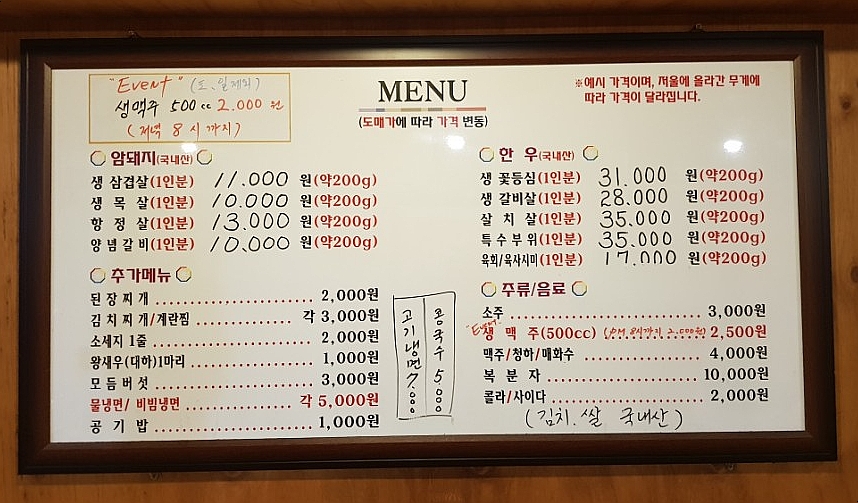 "Event" (토, 일 제외)
생맥주 500cc 2.000원
(저녁 8시까지)
MENU
(도매가에 따라 가격 변동)
※예시 가격이며, 저울에 올라간 무게에
따라 가격이 달라집니다.
암돼지(국내산)
생 삼겹살(1인분) 11.000 원(약200g)
생 목 살(1인분) 10.000 원(약200g)
항 정 살(1인분) 13.000 원(약200g)
양념갈비(1인분) 10.000 원(약200g)
추가메뉴
된장찌개 2,000원
김치찌개/계란찜 각 3,000원
소세지 1줄 2,000원
왕새우(대하)1마리 1,000원
모듬버섯 3,000원
물냉면/ 비빔냉면 각 5,000원
공 기 밥 1,000원
고기냉면 7.000
콩국수 5000
한 우(국내산)
생 꽃등심(1인분) 31.000 원(약200g)
생 갈비살(1인분) 28.000 원(약200g)
살 치 살(1인분) 35.000 원(약200g)
특수부위(1인분) 35.000 원(약200g)
육회/육사시미(1인분) 17.000 원(약200g)
주류/음료
소주 3,000원
"Event" 생 맥 주(500cc) (PM 8시까지 2.000원) 2,500원
맥주/청하/매화수 4,000원
복 분 자 10,000원
콜라/사이다 2,000원
(김치.쌀 국내산)